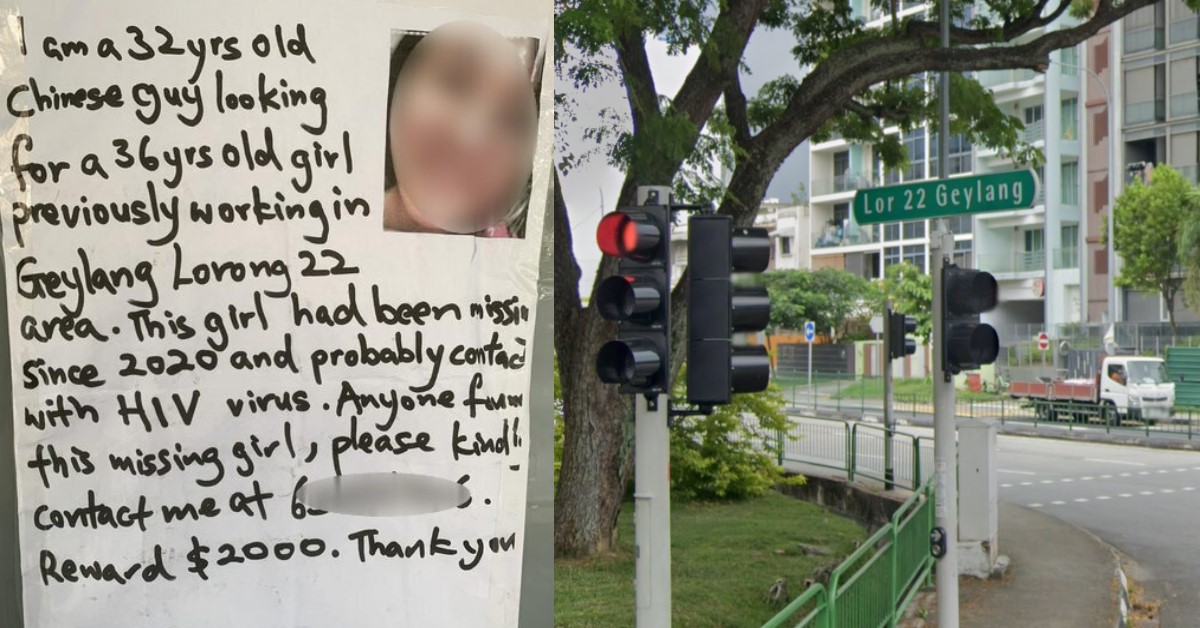 I am a 32yrs old
Chinese guy looking
for a 36yrs old girl
previously working in
Geylang Lorong 22
area. This girl had been missin
since 2020 and probably contac
with HIV virus. Anyone
this missing girl, please kindl
contact me at 6
Reward $2000. Thank you
Lor 22 Geylang